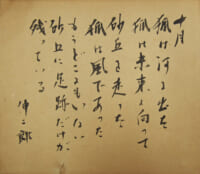 十月
狐は河を出た
狐は未来へ向って
砂丘を走った
狐は風であった
もうどこにもいない
砂丘に足跡だけが
残っている
伸二郎